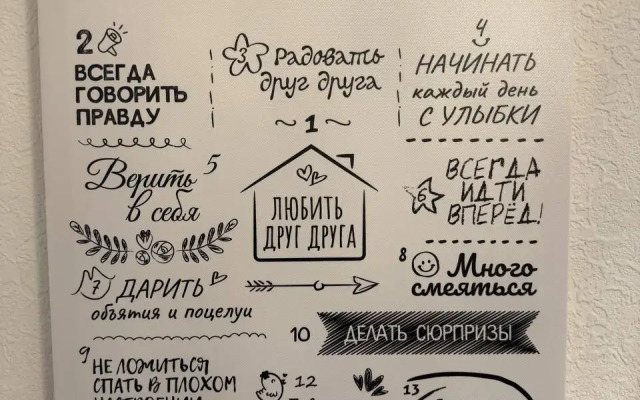 2
ВСЕГДА
ГОВОРИТЬ
ПРАВДУ
3 Радовать
друг друга
4
НАЧИНАТЬ
каждый день
С УЛЫБКИ
~ 1 ~
ЛЮБИТЬ
ДРУГ ДРУГА
Верить 5
в себя
6 ВСЕГДА
ИДТИ
ВПЕРЁД!
7 ДАРИТЬ
объятия и поцелуи
8 Много
смеяться
10 ДЕЛАТЬ СЮРПРИЗЫ
9 НЕ ЛОЖИТЬСЯ
СПАТЬ В ПЛОХОМ
12
13